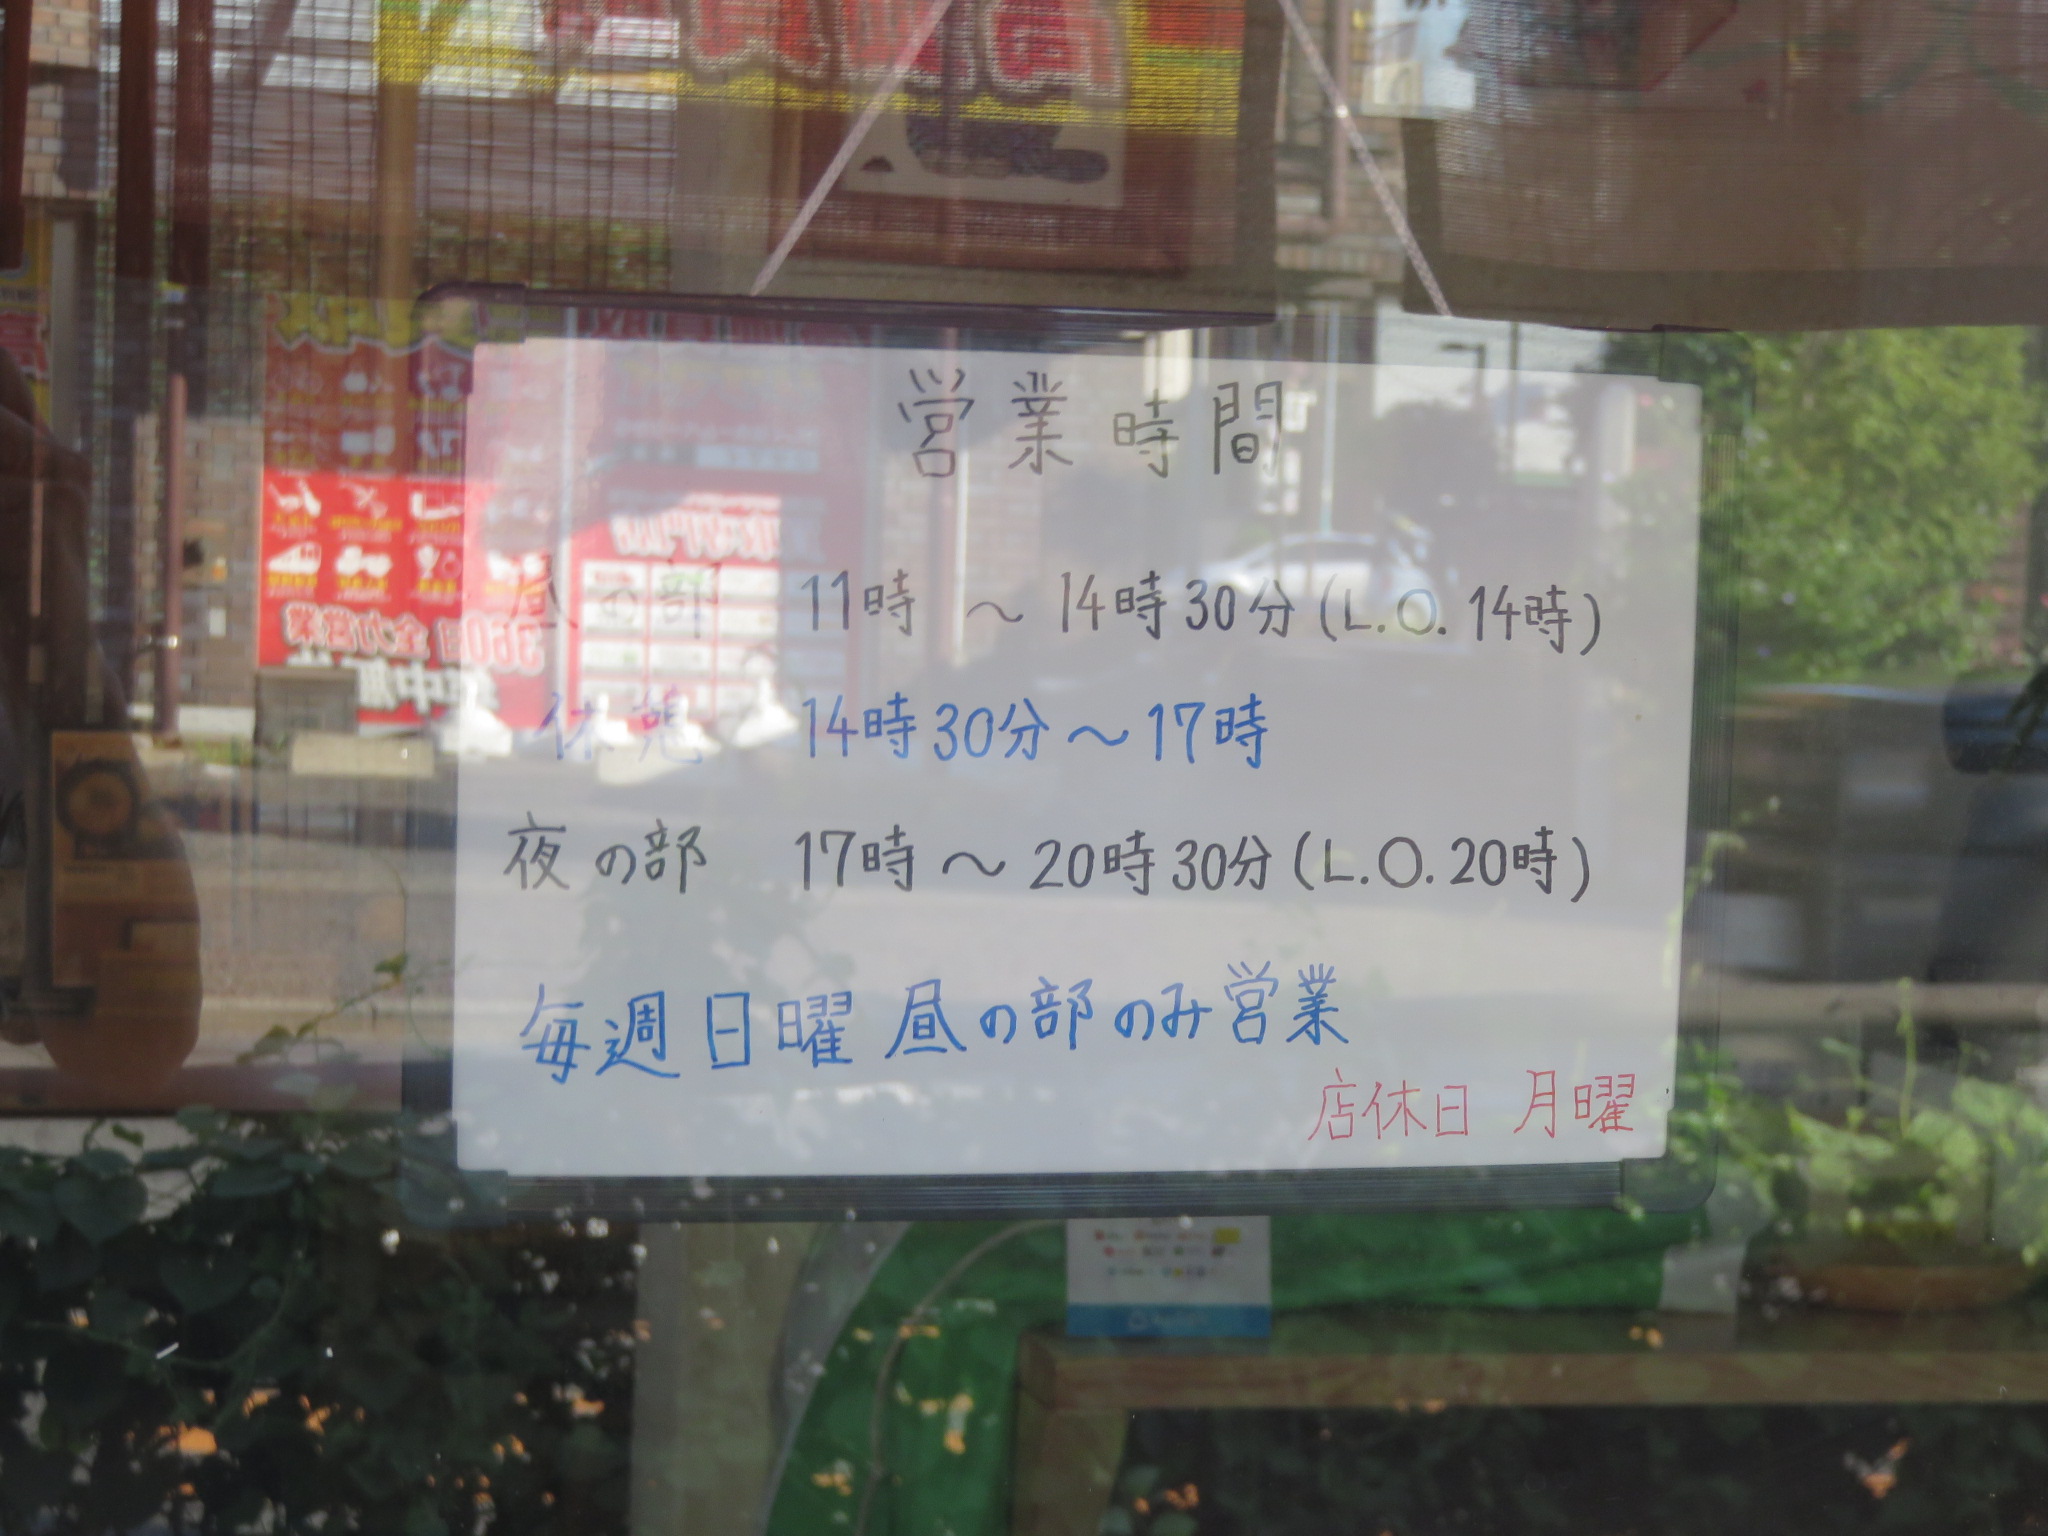 営業時間
昼の部 11時 ～ 14時30分(L.O.14時)
休憩 14時30分～17時
夜の部 17時～20時30分(L.O.20時)
毎週日曜 昼の部のみ営業
店休日 月曜
360日全力営業